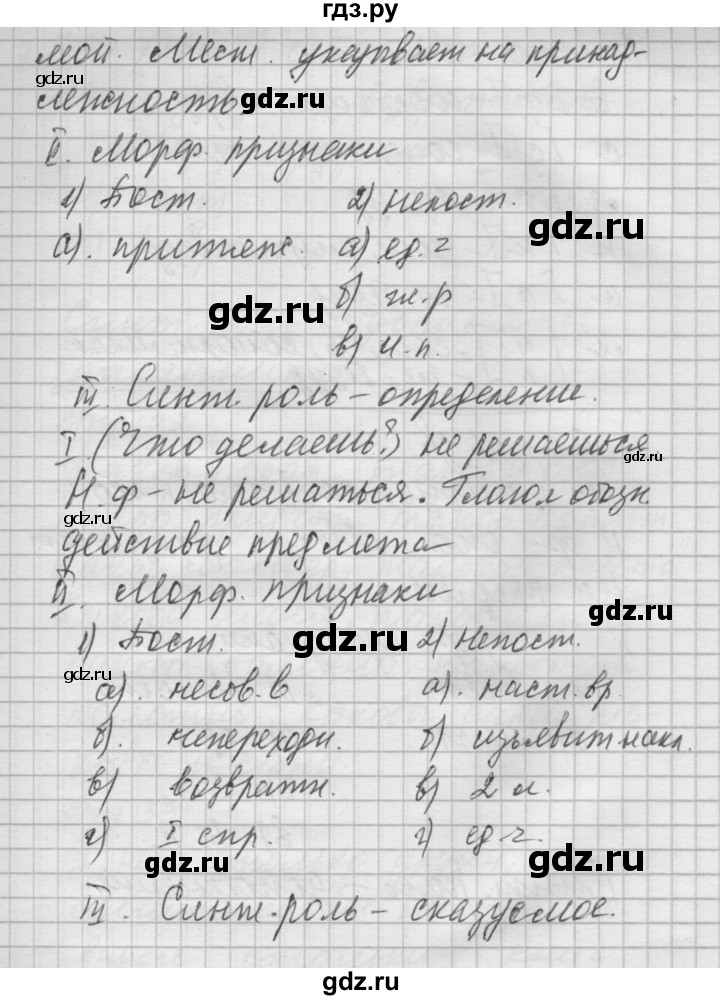 гдз.ру
мой. Мест. указывает на принад-
лежность
gdz.ru
II. Морф. признаки
1) Пост. 2) непост.
gdz.ru
а). притяж. а) ед. ч
gdz.ru
б) ж.р
в) И.п.
gdz.ru
III. Синт. роль – определение.
I (Что делаешь?) не решаешься
gdz.ru
Н.ф – не решаться. Глагол обозн.
gdz.ru
действие предмета
II. Морф. признаки
gdz.ru
1) Пост. 2) Непост.
gdz.ru
gdz.ru
а). несов. в а). наст. вр.
б). непереходн. б) изъявит накл.
в) возвратн. в) 2 л.
г) I спр. г) ед. ч.
gdz.ru gdz.ru
III. Синт. роль – сказуемое.
gdz.ru
gdz.ru